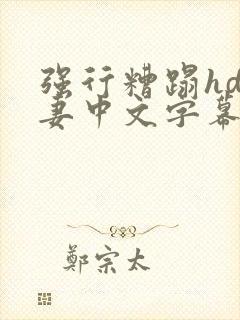 强行糟蹋hd
妻中文字幕
鄭宗太